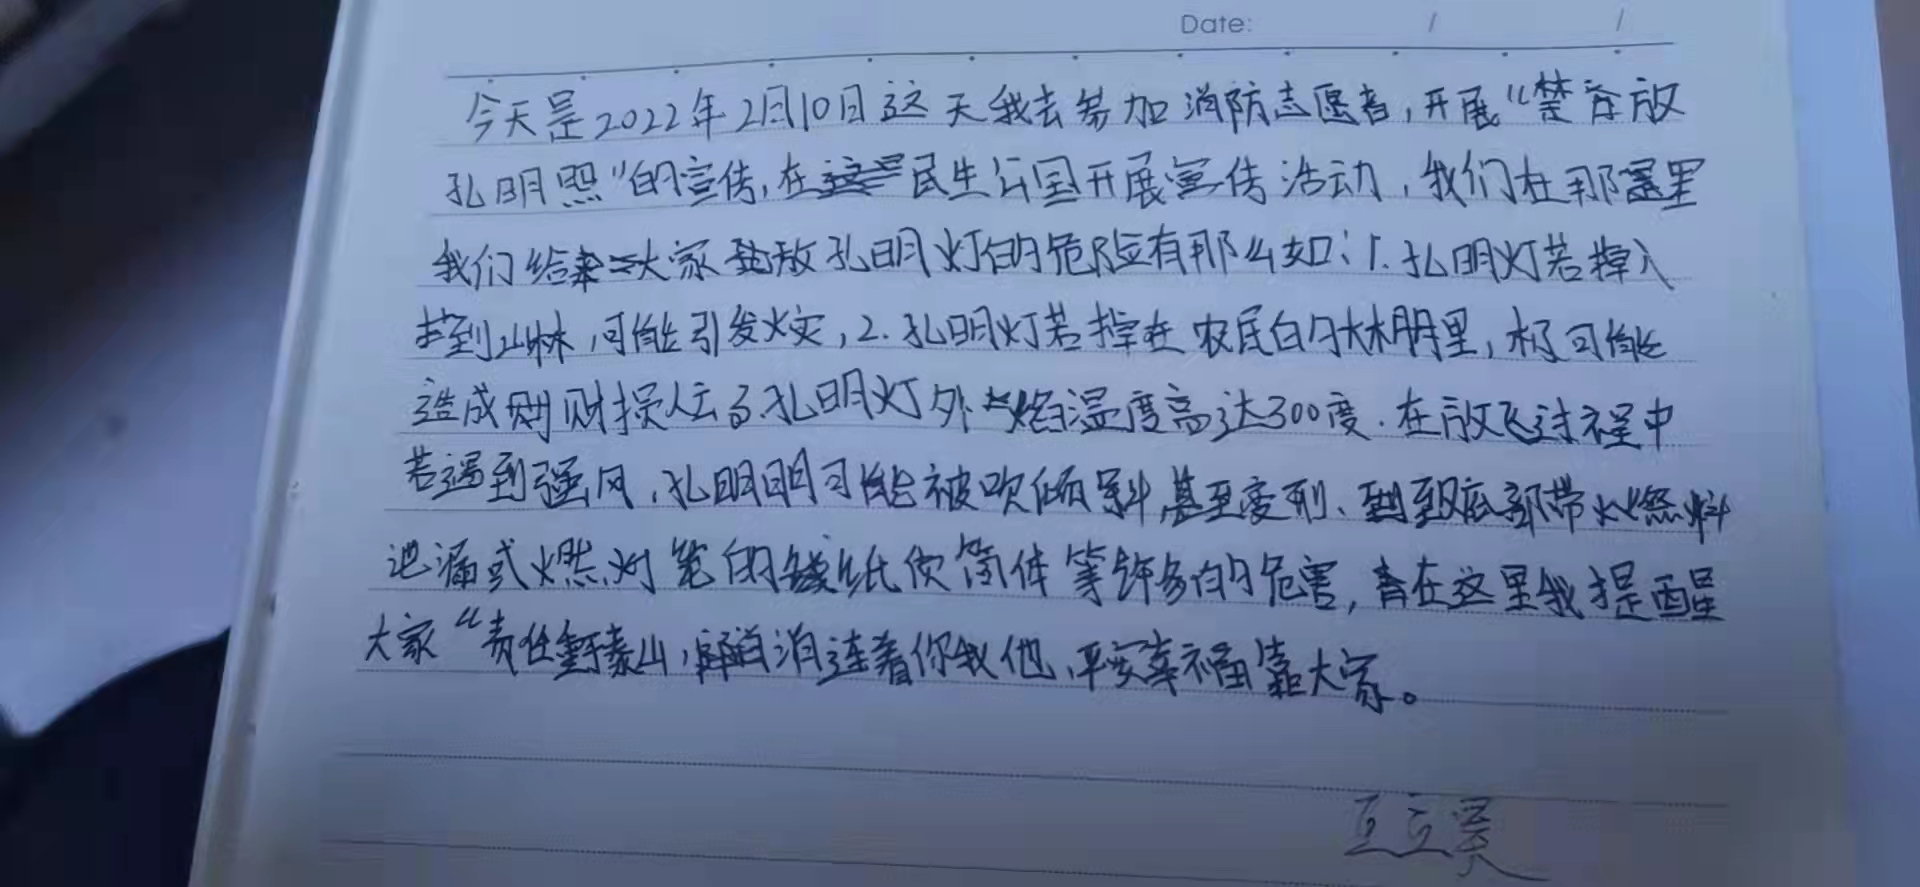 Date: / /
今天是2022年2月10日这天我去参加消防志愿者,开展“禁弃放
孔明照”的宣传,在民生公园开展宣传活动,我们在那里
我们给大家放孔明灯的危险有那么如:1.孔明灯若掉入
到山林,可能引发火灾,2.孔明灯若掉在农民的林棚里,极可能
造成财损人亡3.孔明灯外焰温度高达300度.在放飞过程中
若遇到强风,孔明明可能被吹倾斜,甚至变形、到底部带火燃料
泄漏或燃灯笼的纸质筒体等许多的危害,在这里我提醒
大家“责任重于泰山,消连着你我他,平安幸福靠大家。